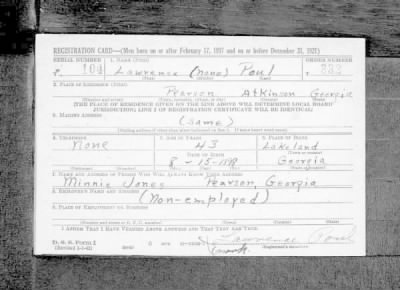 REGISTRATION CARD—(Men born on or after February 17, 1897 and on or before December 31, 1921)
SERIAL NUMBER 1. NAME (Print) ORDER NUMBER
104 Lawrence (none) Poul
2. PLACE OF RESIDENCE (Print)
Pearson Atkinson Georgia
[THE PLACE OF RESIDENCE GIVEN ON THE LINE ABOVE WILL DETERMINE LOCAL BOARD
JURISDICTION; LINE 2 OF REGISTRATION CERTIFICATE WILL BE IDENTICAL]
3. MAILING ADDRESS
(Same)
[Mailing address if other than place indicated on line 2. If same insert word same]
4. TELEPHONE 5. AGE IN YEARS 6. PLACE OF BIRTH
None 43 Lakeland
DATE OF BIRTH
8-15-1898 Georgia
7. NAME AND ADDRESS OF PERSON WHO WILL ALWAYS KNOW YOUR ADDRESS
Minnie Jones Pearson, Georgia
8. EMPLOYER'S NAME AND ADDRESS
(Non-employed)
9. PLACE OF EMPLOYMENT OR BUSINESS
I AFFIRM THAT I HAVE VERIFIED ABOVE ANSWERS AND THAT THEY ARE TRUE.
D. S. S. Form 1
Lawrence Poul
(mark)